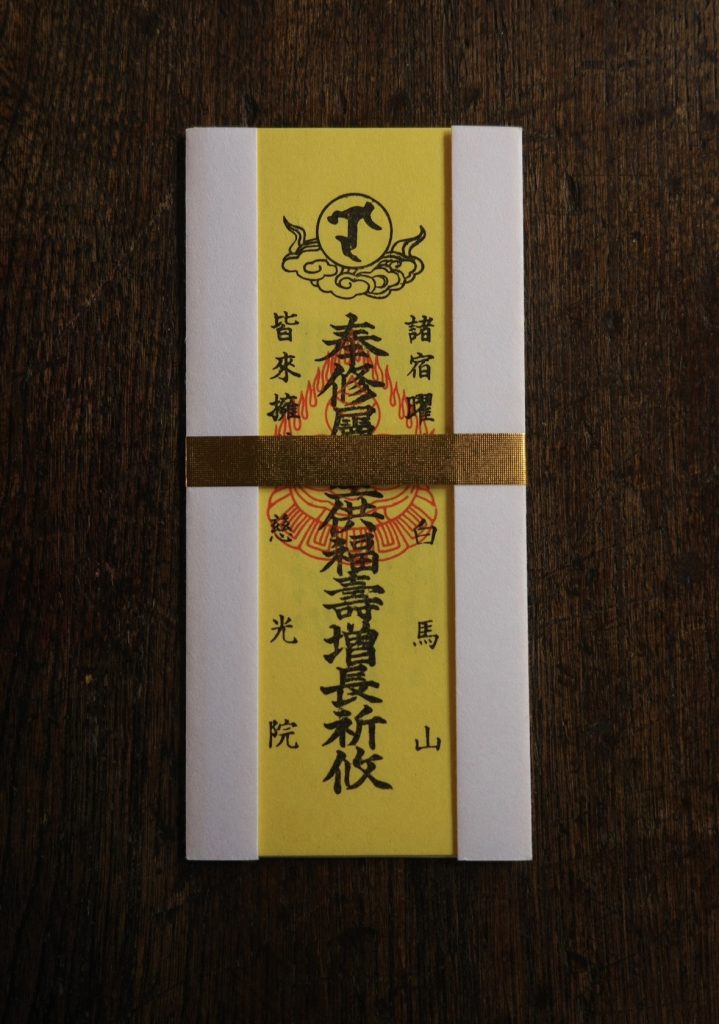 諸宿曜
白馬山
奉修
供福壽増長祈攸
皆來擁
慈光院